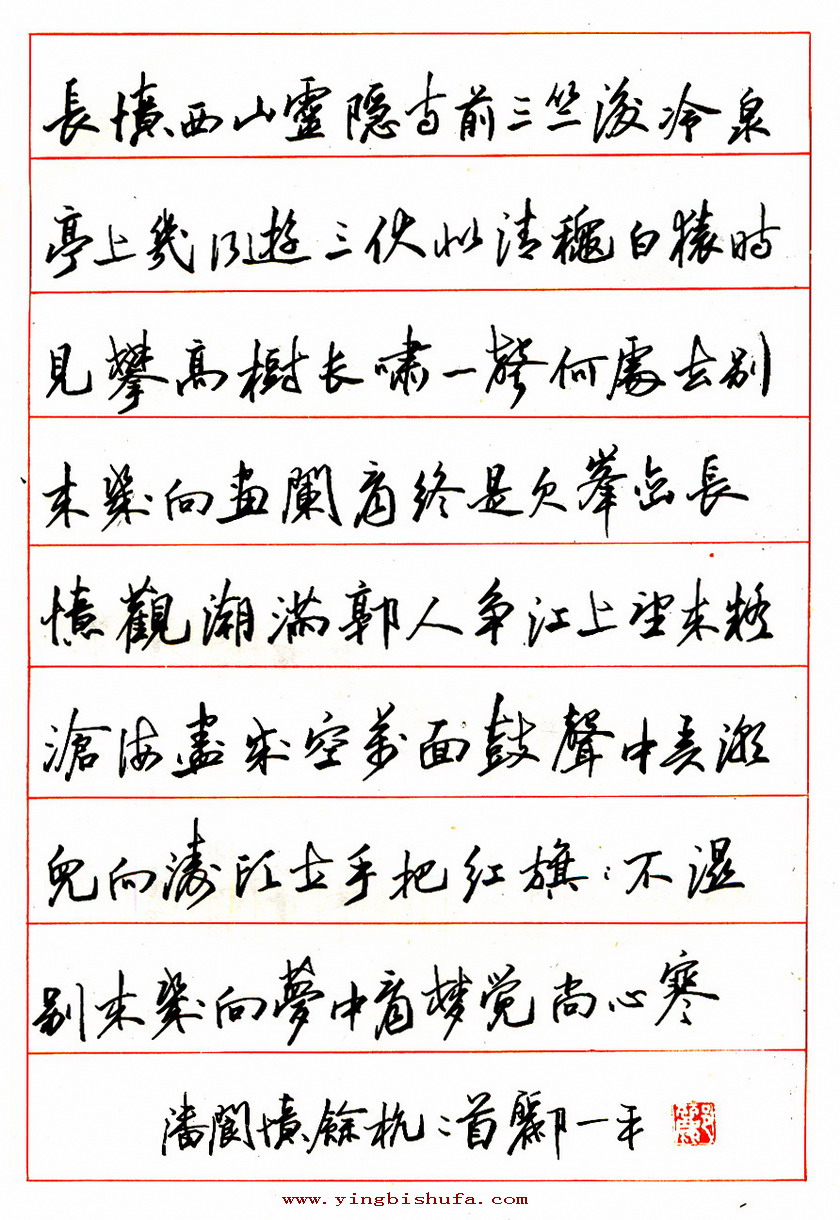 長憶西山靈隱寺前三竺後冷泉
亭上幾行遊三伏似清穐白猿時
見攀高樹长啸一聲何處去别
来幾向畫闌看终是欠峯峦長
憶觀潮滿郭人争江上望来疑
滄海盡成空萬面鼓聲中弄潮
兒向濤頭立手把红旗：不濕
别来幾向夢中看梦觉尚心寒
潘閬憶餘杭：首鄺一平
www.yingbishufa.com